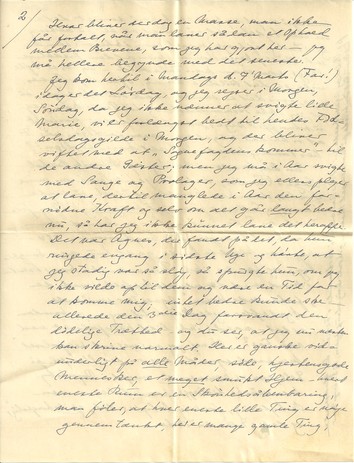 2/
Hvor bliver der dog en Masse, man ikke
får fortalt, når man laver sådan et Ophold
mellem Brevene, som jeg har gjort her – jeg
må hellere begynde med det seneste.
Jeg kom hertil i Mandags d. 7 Marts (Far!)
i dag er det Lørdag, og jeg rejser i Morgen,
Søndag, da jeg ikke nænner at svigte lille
Marie, vi er forlængst bedt til hendes Fød-
selsdagsgilde i Morgen, og der bliver
viftet med, at "Sognefogdens kommer" – til
de andre Gæster; men jeg må i Aar svigte
med Sange og Prologer, som jeg ellers plejer
at lave, dertil manglede i Aar den for-
nødne Kraft og selv om det går langt bedre
nu, så har jeg ikke kunnet lave det herefter
Det var Agnes, der fandt på det, da hun
ringede engang i sidste Uge og hørte, at
jeg stadig var så sløj, så spurgte hun, om jeg
ikke vilde op til dem og være en Tid for
at komme mig; intet bedre kunde ske –
allerede den 3die Dag forsvandt den
dødelige Træthed – og du ser, at jeg nu næsten
kan skrive normalt. Her er ganske vid-
underligt på alle Måder, søde, hjertensgode
Mennesker, et meget smukt Hjem – hvert
eneste Rum er en Skønhedsåbenbaring,
man føler, at hver eneste lille Ting er nøje
gennemtænkt, her er mange gamle Ting,